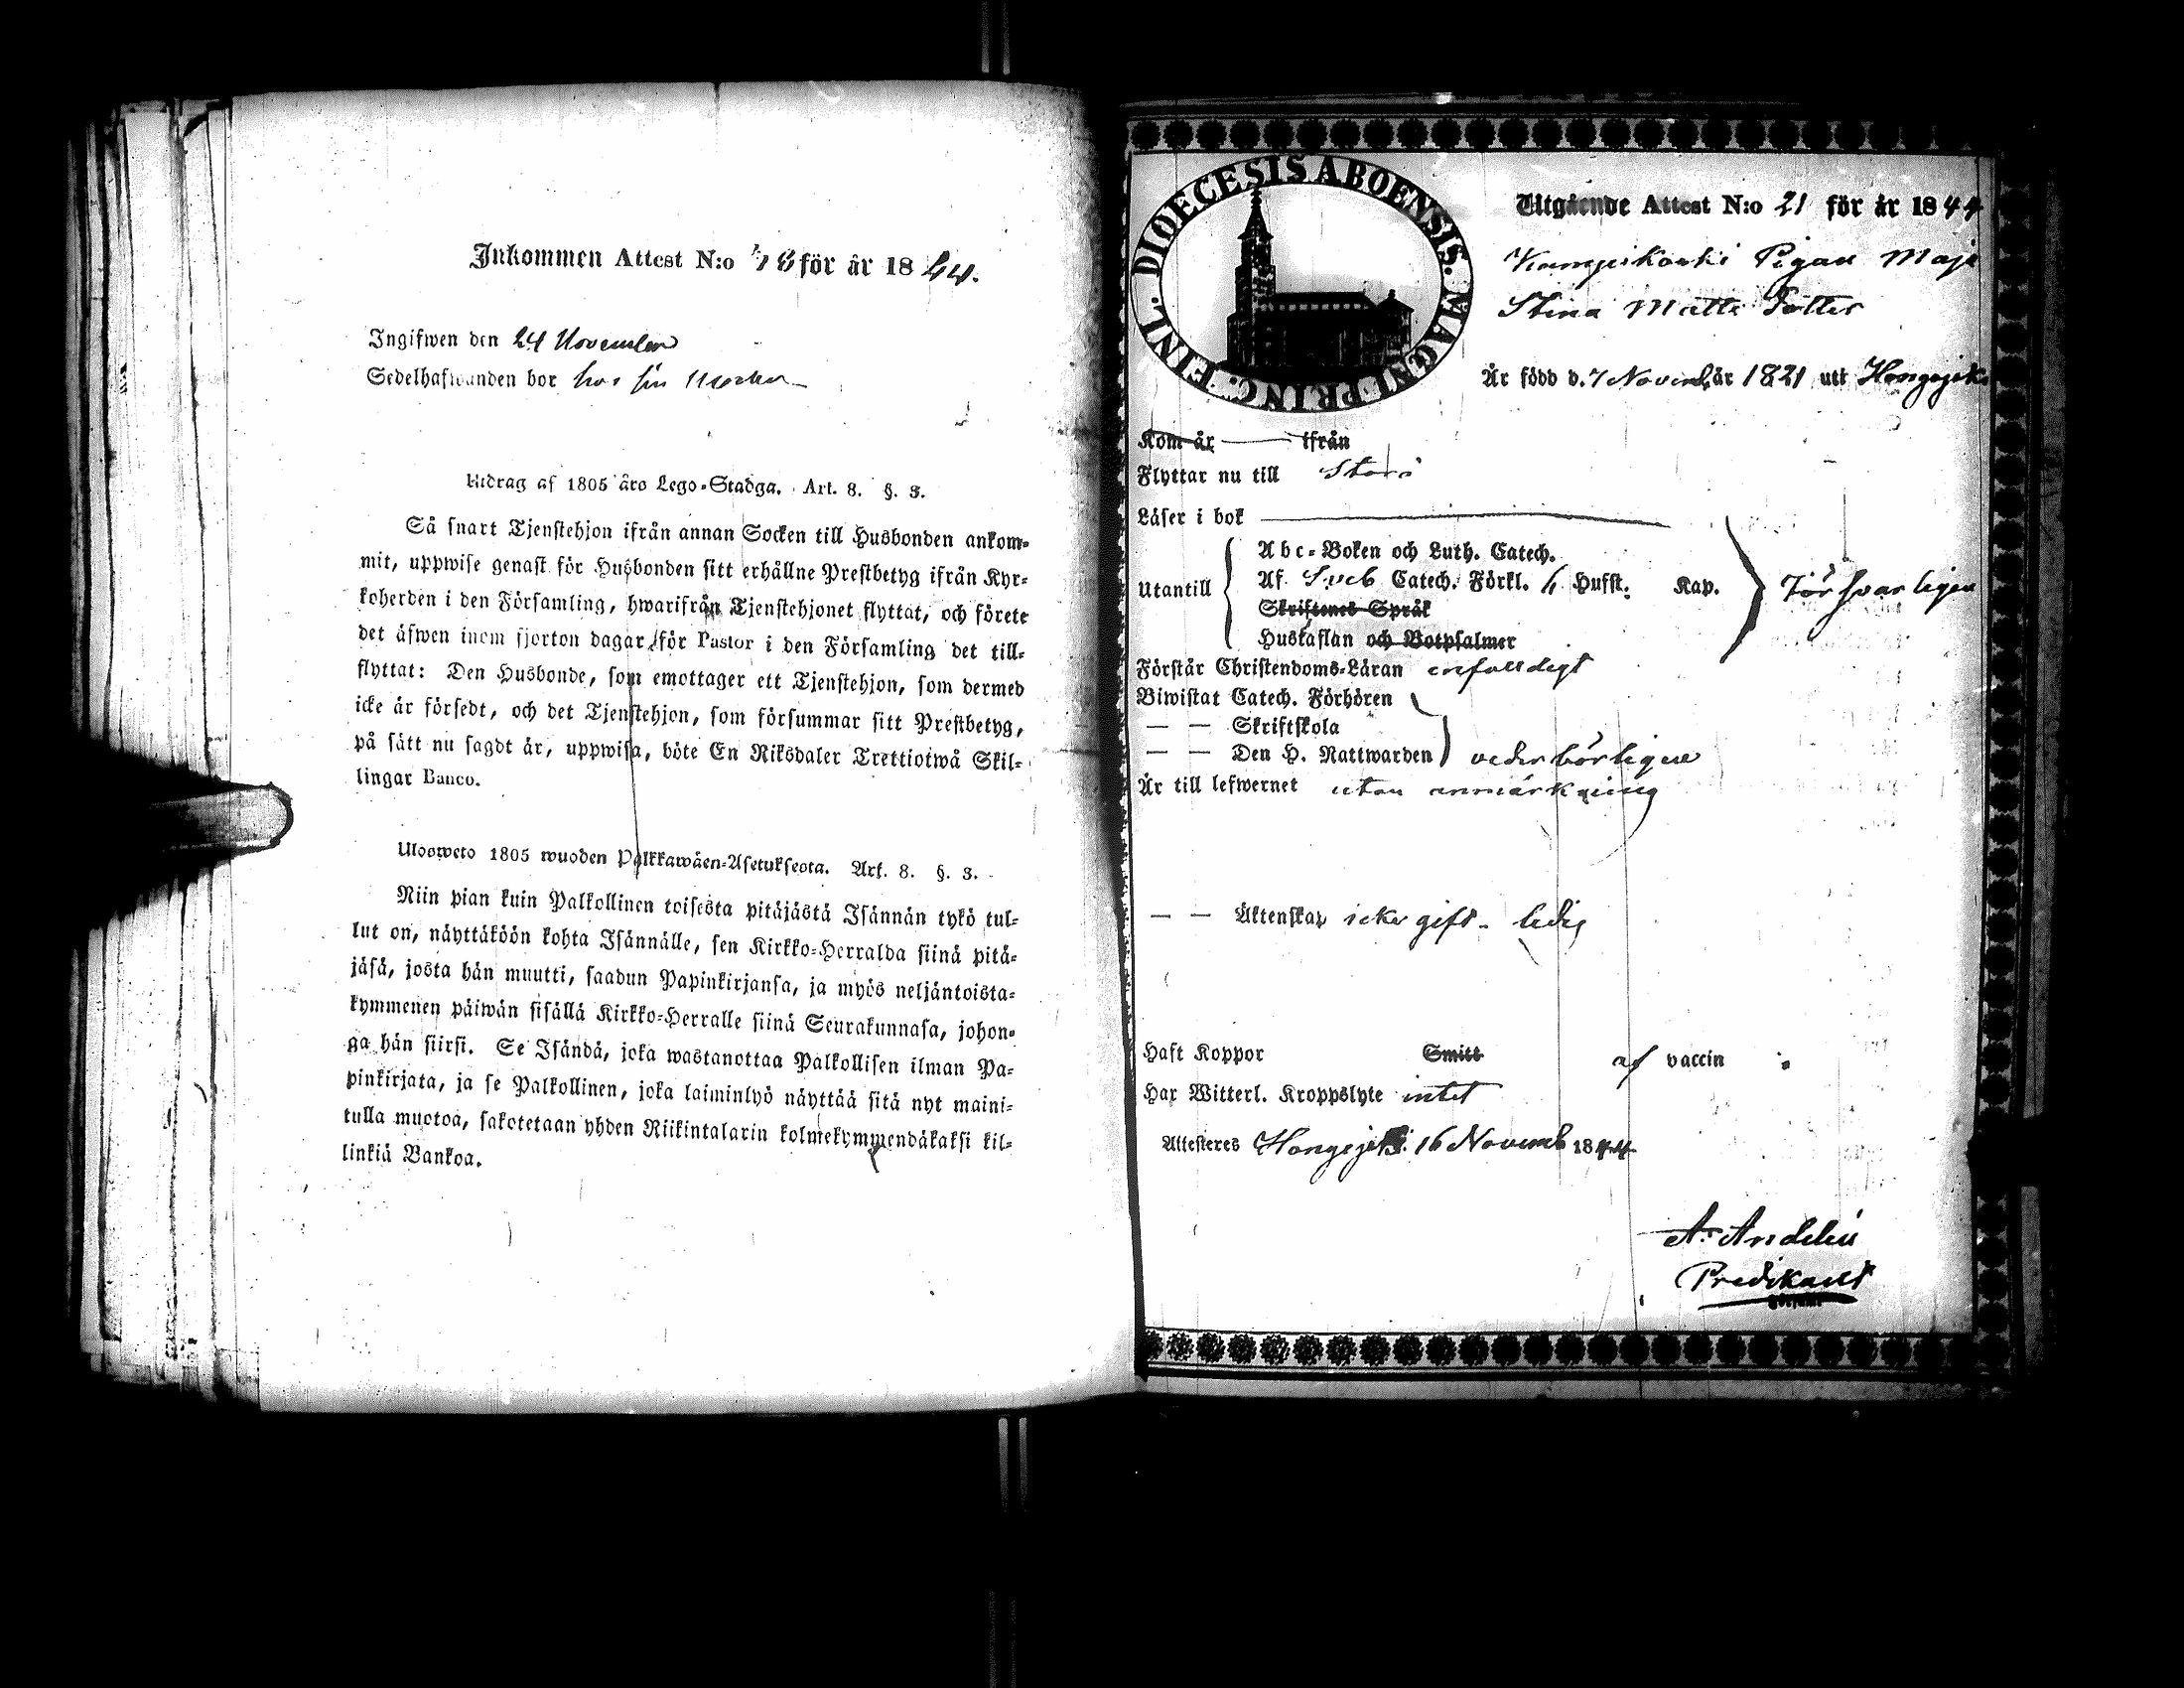 Inkommen Attest N:o 78 för år 1844.
Ingifwen den 24 November
Sedelhafwanden bor hos sin
Utdrag af 1805 års Lego-Stadga. Art. 8. §. 3.
Så snart Tjenstehjon ifrån annan Socken till Husbonden ankom-
mit, uppwise genast för Husbonden sitt erhållne Prestbetyg ifrån Kyr-
koherden i den Församling, hwarifrån Tjenstehjonet flyttat, och förete
det äfwen inom fjorton dagar för Pastor i den Församling det till-
flyttat: Den Husbonde, som emottager ett Tjenstehjon, som dermed
icke är försedt, och det Tjenstehjon, som försummar sitt Prestbetyg,
på sätt nu sagdt är, uppwisa, böte En Riksdaler Trettiotwå Skil-
lingar Banco.
Ulosweto 1805 wuoden Palkkawäen-Asetuksesta. Art. 8. §. 3.
Niin pian kuin Palkollinen toisesta pitäjästä Isännän tykö tul-
lut on, näyttäköön kohta Isännälle, sen Kirkko-Herralda siinä pitä-
jäsä, josta hän muutti, saadun Papinkirjansa, ja myös neljäntoista-
kymmenen päiwän sisällä Kirkko-Herralle siinä Seurakunnasa, johon-
ga hän siirsi. Se Isändä, joka wastanottaa Palkollisen ilman Pa-
pinkirjata, ja se Palkollinen, joka laiminlyö näyttää sitä nyt maini-
tulla muotoa, sakotetaan yhden Riikintalarin kolmekymmendäkaksi kil-
linkiä Bankoa.
DIOECESIS ABOENSIS. MAGNI PRINC. FINL.
Utgående Attest N:o 21 för år 1844
Kampikoski Pigan Maja
Stina Matts Dotter
Är född d. 7 Novemb. år 1821 uti Hongojoki
Kom år ifrån
Flyttar nu till
Läser i bok
Abc-Boken och Luth. Catech.
Utantill Af Sveb Catech. Förkl. Hufst. Kap. Försvarligen
Skriftenes Språk
Hustaflan och Botpsalmer
Förstår Christendoms-Läran enfaldigt
Biwistat Catech. Förhören
— — Skriftskola
— — Den H. Nattwarden vederbörligen
Är till lefwernet utan anmärkning
— — Äktenskap icke gift - ledig
Haft Koppor Smitt af vaccin
Har Witterl. Kroppslyte intet
Attesteres Hongojoki 16 Novemb 1844
A. Andelin
Predikant